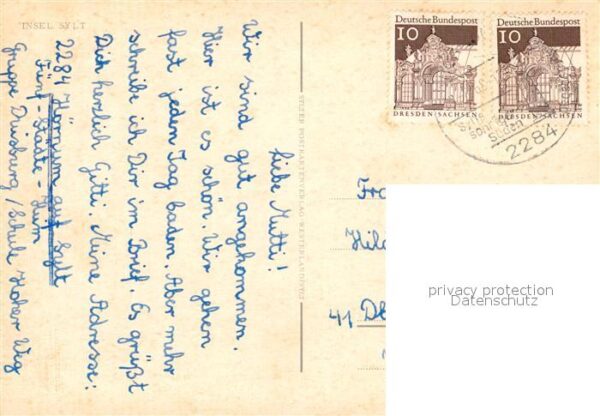 INSEL SYLT
Liebe Mutti!
Wir sind gut angekommen.
Hier ist es schön. Wir gehen
fast jeden Tag baden. Aber mehr
schreibe ich Dir im Brief. Es grüßt
Dich herzlich Gitti. Meine Adresse:
2284 Hörnum auf Sylt
Fünf-Städte-Heim
Gruppe Duisburg / Schule Hoher Weg
SYLTER POSTKARTENVERLAG WESTERLAND/SYLT
Deutsche Bundespost
10
DRESDEN/SACHSEN
Deutsche Bundespost
10
DRESDEN/SACHSEN
Süden
2284
Hild
41
privacy protection
Datenschutz